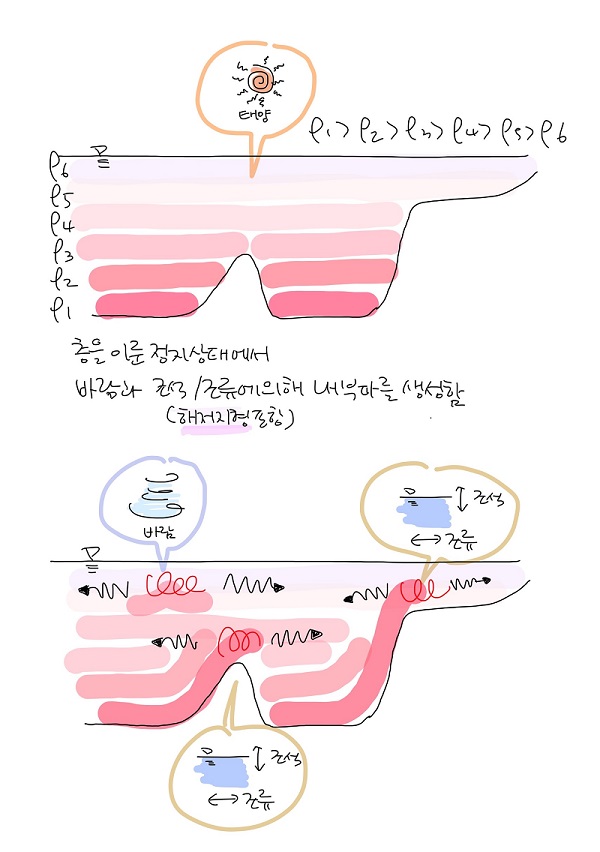 태양
ρ1 > ρ2 > ρ3 > ρ4 > ρ5 > ρ6
ρ6
ρ5
ρ4
ρ3
ρ2
ρ1
층을 이룬 정지상태에서
바람과 조석/조류에 의해 내부파를 생성함
(해저지형 포함)
바람
조석
조류
조석
조류